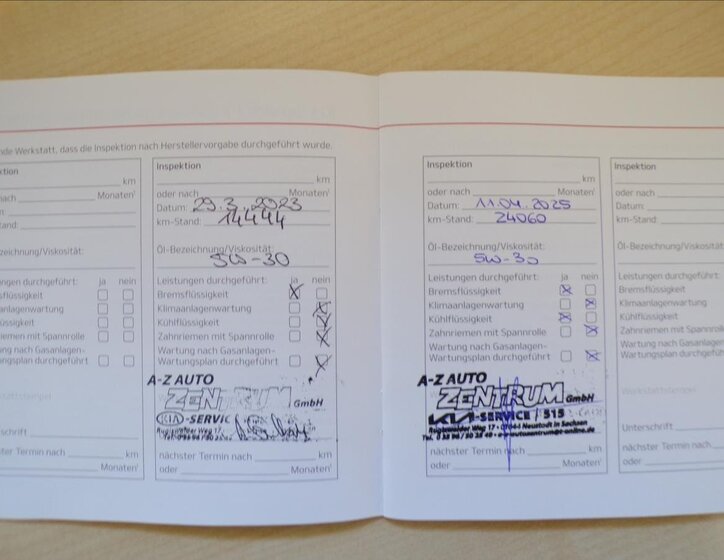 nde Werkstatt, dass die Inspektion nach Herstellervorgabe durchgeführt wurde.
ktion
km
nach Monaten¹
m:
tand:
Bezeichnung/Viskosität:
ungen durchgeführt: ja nein
sflüssigkeit
anlagenwartung
lüssigkeit
riemen mit Spannrolle
ung nach Gasanlagen-
ungsplan durchgeführt
rschrift
hster Termin nach km
Monaten¹
Inspektion
km
oder nach Monaten¹
Datum: 29.3.2023
km-Stand: 14444
Öl-Bezeichnung/Viskosität:
5W-30
Leistungen durchgeführt: ja nein
Bremsflüssigkeit
Klimaanlagenwartung
Kühlflüssigkeit
Zahnriemen mit Spannrolle
Wartung nach Gasanlagen-
Wartungsplan durchgeführt
A-Z AUTO
ZENTRUM GmbH
KIA -SERVIC
nächster Termin nach km
oder Monaten¹
Inspektion
km
oder nach Monaten¹
Datum: 11.04.2025
km-Stand: 24060
Öl-Bezeichnung/Viskosität:
5W-30
Leistungen durchgeführt: ja nein
Bremsflüssigkeit
Klimaanlagenwartung
Kühlflüssigkeit
Zahnriemen mit Spannrolle
Wartung nach Gasanlagen-
Wartungsplan durchgeführt
A-Z AUTO
ZENTRUM GmbH
KIA -SERVICE / S15
Neustadt in Sachsen
nächster Termin nach km
oder Monaten¹
Inspektion
oder nach
Datum:
km-Stand:
Öl-Bezeichnung/Visko
Leistungen durchgefüh
Bremsflüssigkeit
Klimaanlagenwartung
Kühlflüssigkeit
Zahnriemen mit Spann
Wartung nach Gasanla
Wartungsplan durchge
Werkstattstempel
Unterschrift
nächster Termin nach
oder